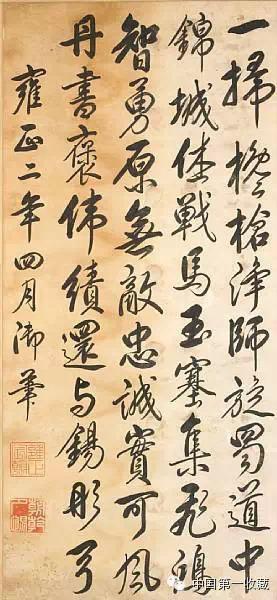 一掃欃槍淨師旋蜀道中
錦城休戰馬玉塞集飛鴻
智勇原無敵忠誠實可風
丹書褒偉績還与錫彤弓
雍正二年四月御筆
中国第一收藏